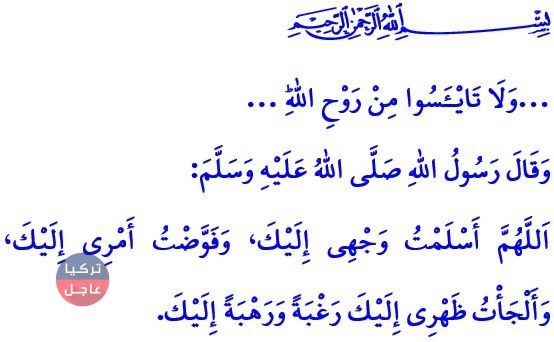 بِسْمِ اللهِ الرَّحْمٰنِ الرَّحِيمِ
...وَلَا تَايْـَٔسُوا مِنْ رَوْحِ اللهِ ...
وَقَالَ رَسُولُ اللهِ صَلَّى اللهُ عَلَيْهِ وَسَلَّمَ:
اَللَّهُمَّ أَسْلَمْتُ وَجْهِى إِلَيْكَ، وَفَوَّضْتُ أَمْرِى إِلَيْكَ،
وَأَلْجَأْتُ ظَهْرِى إِلَيْكَ رَغْبَةً وَرَهْبَةً إِلَيْكَ.
تركيا
عاجل